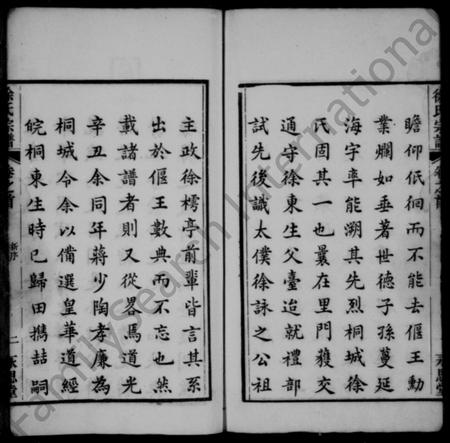 徐氏宗譜
卷之首
瞻仰低徊而不能去偃王勳
業爛如垂著世德子孫蔓延
海宇率能溯其先烈桐城徐
氏固其一也曩在里門獲交
通守徐東生父臺迨就禮部
試先後識太僕徐詠之公祖
主政徐樗亭前輩皆言其系
出於偃王數典而不忘也然
載諸譜者則又從畧焉道光
辛丑余同年蔣少陶孝廉為
桐城令余以備選皇華道經
皖桐東生時已歸田携喆嗣
徐氏宗譜
卷之首
新序
二
FamilySearch International